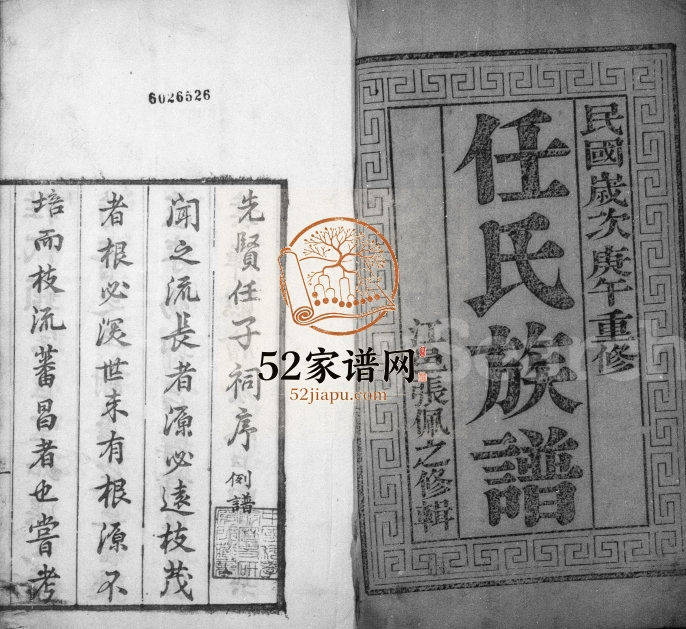 民國歲次庚午重修
任氏族譜
張佩之修輯
6026526
先賢任子祠序 例譜
聞之流長者源必遠枝茂
者根必深世未有根源不
培而枝流蕃昌者也嘗考
52家谱网
52jiapu.com
Search